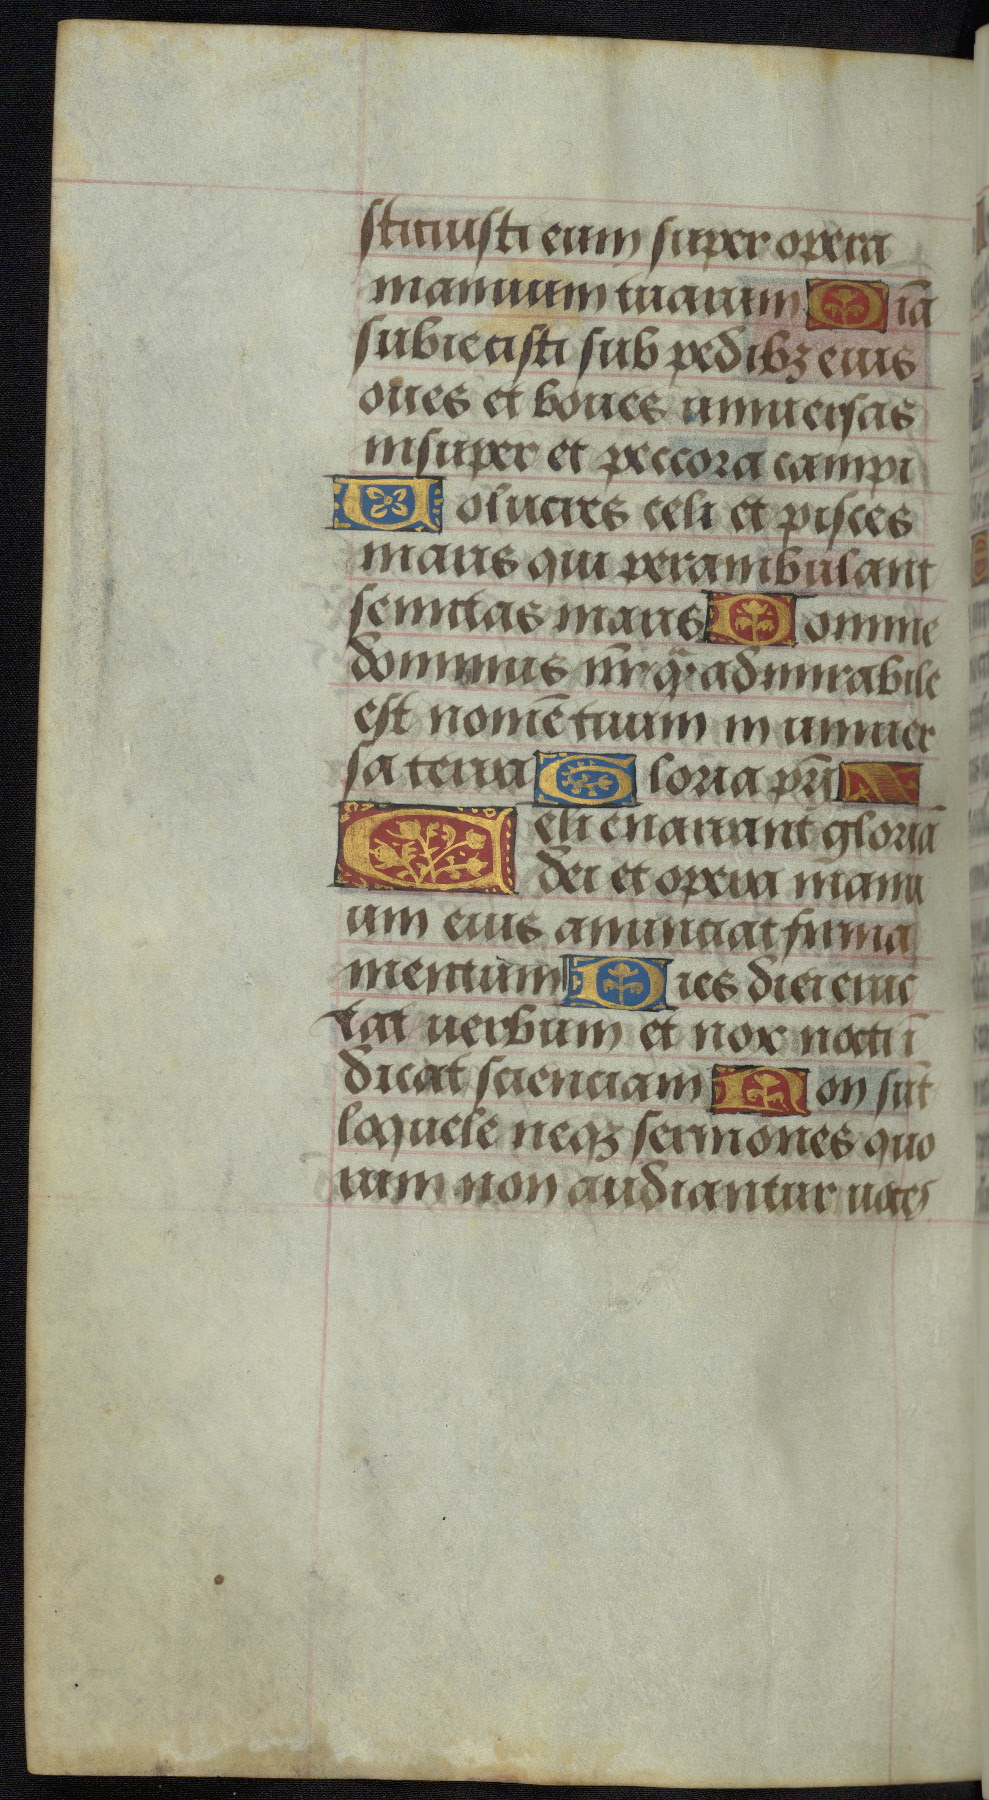 stituisti eum super opera
manuum tuarum Oīa
subiecisti sub pedibꝫ eius
oues et boues uniuersas
insuper et peccora campi
Volucres celi et pisces
maris qui perambulant
semitas maris Domine
dominus nr̄ qͣ admirabile
est nomē tuum in uniuer
sa terra Gloria pr̄i
Celi enarrant gloriā
dei et opera manu
um eius anunciat firma
mentum Dies diei eruc
tat uerbum et nox nocti ī
dicat scienciam Non sūt
loquele neqꝫ sermones quo
rum non audiantur uoces